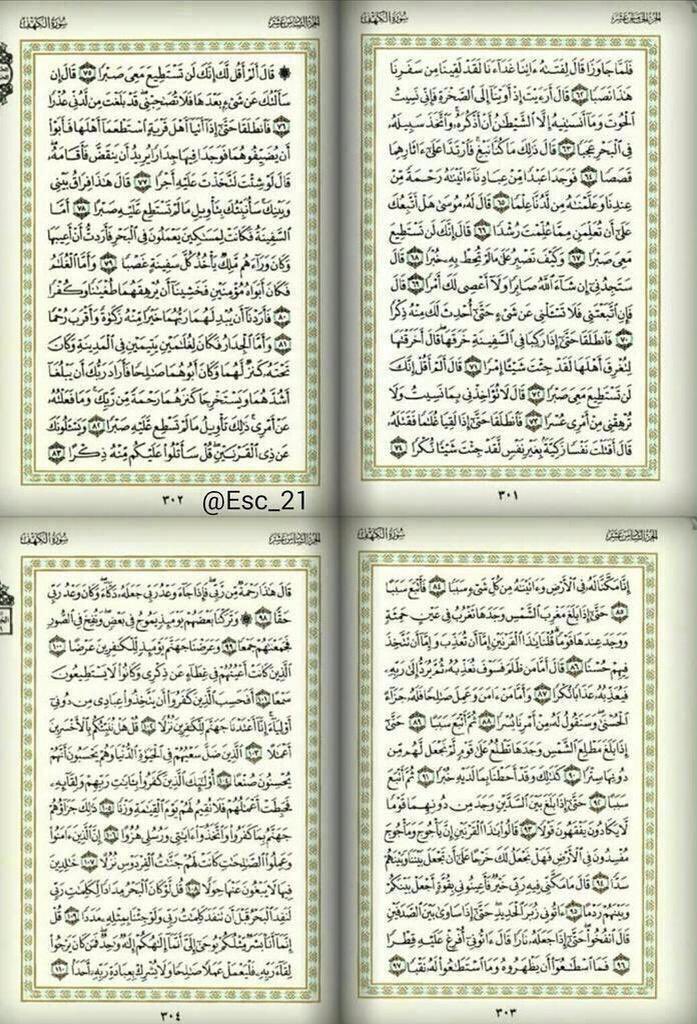 الجزء الخامس عشر
سورة الكهف
فلما جاوزا قال لفتىه ءاتنا غداءنا لقد لقينا من سفرنا
هذا نصبا ٦٢ قال أرءيت إذ أوينا إلى الصخرة فإني نسيت
الحوت وما أنسىنيه إلا الشيطن أن أذكره واتخذ سبيله
في البحر عجبا ٦٣ قال ذلك ما كنا نبغ فارتدا على ءاثارهما
قصصا ٦٤ فوجدا عبدا من عبادنا ءاتينه رحمة من
عندنا وعلمنه من لدنا علما ٦٥ قال له موسى هل أتبعك
على أن تعلمن مما علمت رشدا ٦٦ قال إنك لن تستطيع
معي صبرا ٦٧ وكيف تصبر على ما لم تحط به خبرا ٦٨ قال
ستجدني إن شاء الله صابرا ولا أعصي لك أمرا ٦٩ قال
فإن اتبعتني فلا تسئلني عن شيء حتى أحدث لك منه ذكرا
٧٠ فانطلقا حتى إذا ركبا في السفينة خرقها قال أخرقتها
لتغرق أهلها لقد جئت شيئا إمرا ٧١ قال ألم أقل إنك
لن تستطيع معي صبرا ٧٢ قال لا تؤاخذني بما نسيت ولا
ترهقني من أمري عسرا ٧٣ فانطلقا حتى إذا لقيا غلما فقتله
قال أقتلت نفسا زكية بغير نفس لقد جئت شيئا نكرا ٧٤
٣٠١
الجزء السادس عشر
سورة الكهف
۞ قال ألم أقل لك إنك لن تستطيع معي صبرا ٧٥ قال إن
سألتك عن شيء بعدها فلا تصحبني قد بلغت من لدني عذرا
٧٦ فانطلقا حتى إذا أتيا أهل قرية استطعما أهلها فأبوا
أن يضيفوهما فوجدا فيها جدارا يريد أن ينقض فأقامه
قال لو شئت لتخذت عليه أجرا ٧٧ قال هذا فراق بيني
وبينك سأنبئك بتأويل ما لم تستطع عليه صبرا ٧٨ أما
السفينة فكانت لمسكين يعملون في البحر فأردت أن أعيبها
وكان وراءهم ملك يأخذ كل سفينة غصبا ٧٩ وأما الغلم
فكان أبواه مؤمنين فخشينا أن يرهقهما طغينا وكفرا
٨٠ فأردنا أن يبدلهما ربهما خيرا منه زكوة وأقرب رحما
٨١ وأما الجدار فكان لغلمين يتيمين في المدينة وكان
تحته كنز لهما وكان أبوهما صلحا فأراد ربك أن يبلغا
أشدهما ويستخرجا كنزهما رحمة من ربك وما فعلته
عن أمري ذلك تأويل ما لم تسطع عليه صبرا ٨٢ ويسئلونك
عن ذي القرنين قل سأتلوا عليكم منه ذكرا ٨٣
٣٠٢
@Esc_21
الجزء السادس عشر
سورة الكهف
إنا مكنا له في الأرض وءاتينه من كل شيء سببا ٨٤ فأتبع سببا
٨٥ حتى إذا بلغ مغرب الشمس وجدها تغرب في عين حمئة
ووجد عندها قوما قلنا يذا القرنين إما أن تعذب وإما أن تتخذ
فيهم حسنا ٨٦ قال أما من ظلم فسوف نعذبه ثم يرد إلى ربه
فيعذبه عذابا نكرا ٨٧ وأما من ءامن وعمل صلحا فله جزاء
الحسنى وسنقول له من أمرنا يسرا ٨٨ ثم أتبع سببا ٨٩ حتى
إذا بلغ مطلع الشمس وجدها تطلع على قوم لم نجعل لهم من
دونها سترا ٩٠ كذلك وقد أحطنا بما لديه خبرا ٩١ ثم أتبع
سببا ٩٢ حتى إذا بلغ بين السدين وجد من دونهما قوما
لا يكادون يفقهون قولا ٩٣ قالوا يذا القرنين إن يأجوج ومأجوج
مفسدون في الأرض فهل نجعل لك خرجا على أن تجعل بيننا وبينهم
سدا ٩٤ قال ما مكني فيه ربي خير فأعينوني بقوة أجعل بينكم
وبينهم ردما ٩٥ ءاتوني زبر الحديد حتى إذا ساوى بين الصدفين
قال انفخوا حتى إذا جعله نارا قال ءاتوني أفرغ عليه قطرا
٩٦ فما اسطعوا أن يظهروه وما استطعوا له نقبا ٩٧
٣٠٣
الجزء السادس عشر
سورة الكهف
قال هذا رحمة من ربي فإذا جاء وعد ربي جعله دكاء وكان وعد ربي
حقا ٩٨ ۞ وتركنا بعضهم يومئذ يموج في بعض ونفخ في الصور
فجمعنهم جمعا ٩٩ وعرضنا جهنم يومئذ للكفرين عرضا ١٠٠
الذين كانت أعينهم في غطاء عن ذكري وكانوا لا يستطيعون
سمعا ١٠١ أفحسب الذين كفروا أن يتخذوا عبادي من دوني
أولياء إنا أعتدنا جهنم للكفرين نزلا ١٠٢ قل هل ننبئكم بالأخسرين
أعملا ١٠٣ الذين ضل سعيهم في الحيوة الدنيا وهم يحسبون أنهم
يحسنون صنعا ١٠٤ أولئك الذين كفروا بايت ربهم ولقائه
فحبطت أعملهم فلا نقيم لهم يوم القيمة وزنا ١٠٥ ذلك جزاؤهم
جهنم بما كفروا واتخذوا ءايتي ورسلي هزوا ١٠٦ إن الذين ءامنوا
وعملوا الصلحت كانت لهم جنت الفردوس نزلا ١٠٧ خلدين
فيها لا يبغون عنها حولا ١٠٨ قل لو كان البحر مدادا لكلمت ربي
لنفد البحر قبل أن تنفد كلمت ربي ولو جئنا بمثله مددا ١٠٩ قل
إنما أنا بشر مثلكم يوحى إلي أنما إلهكم إله وحد فمن كان يرجوا
لقاء ربه فليعمل عملا صلحا ولا يشرك بعبادة ربه أحدا ١١٠
٣٠٤